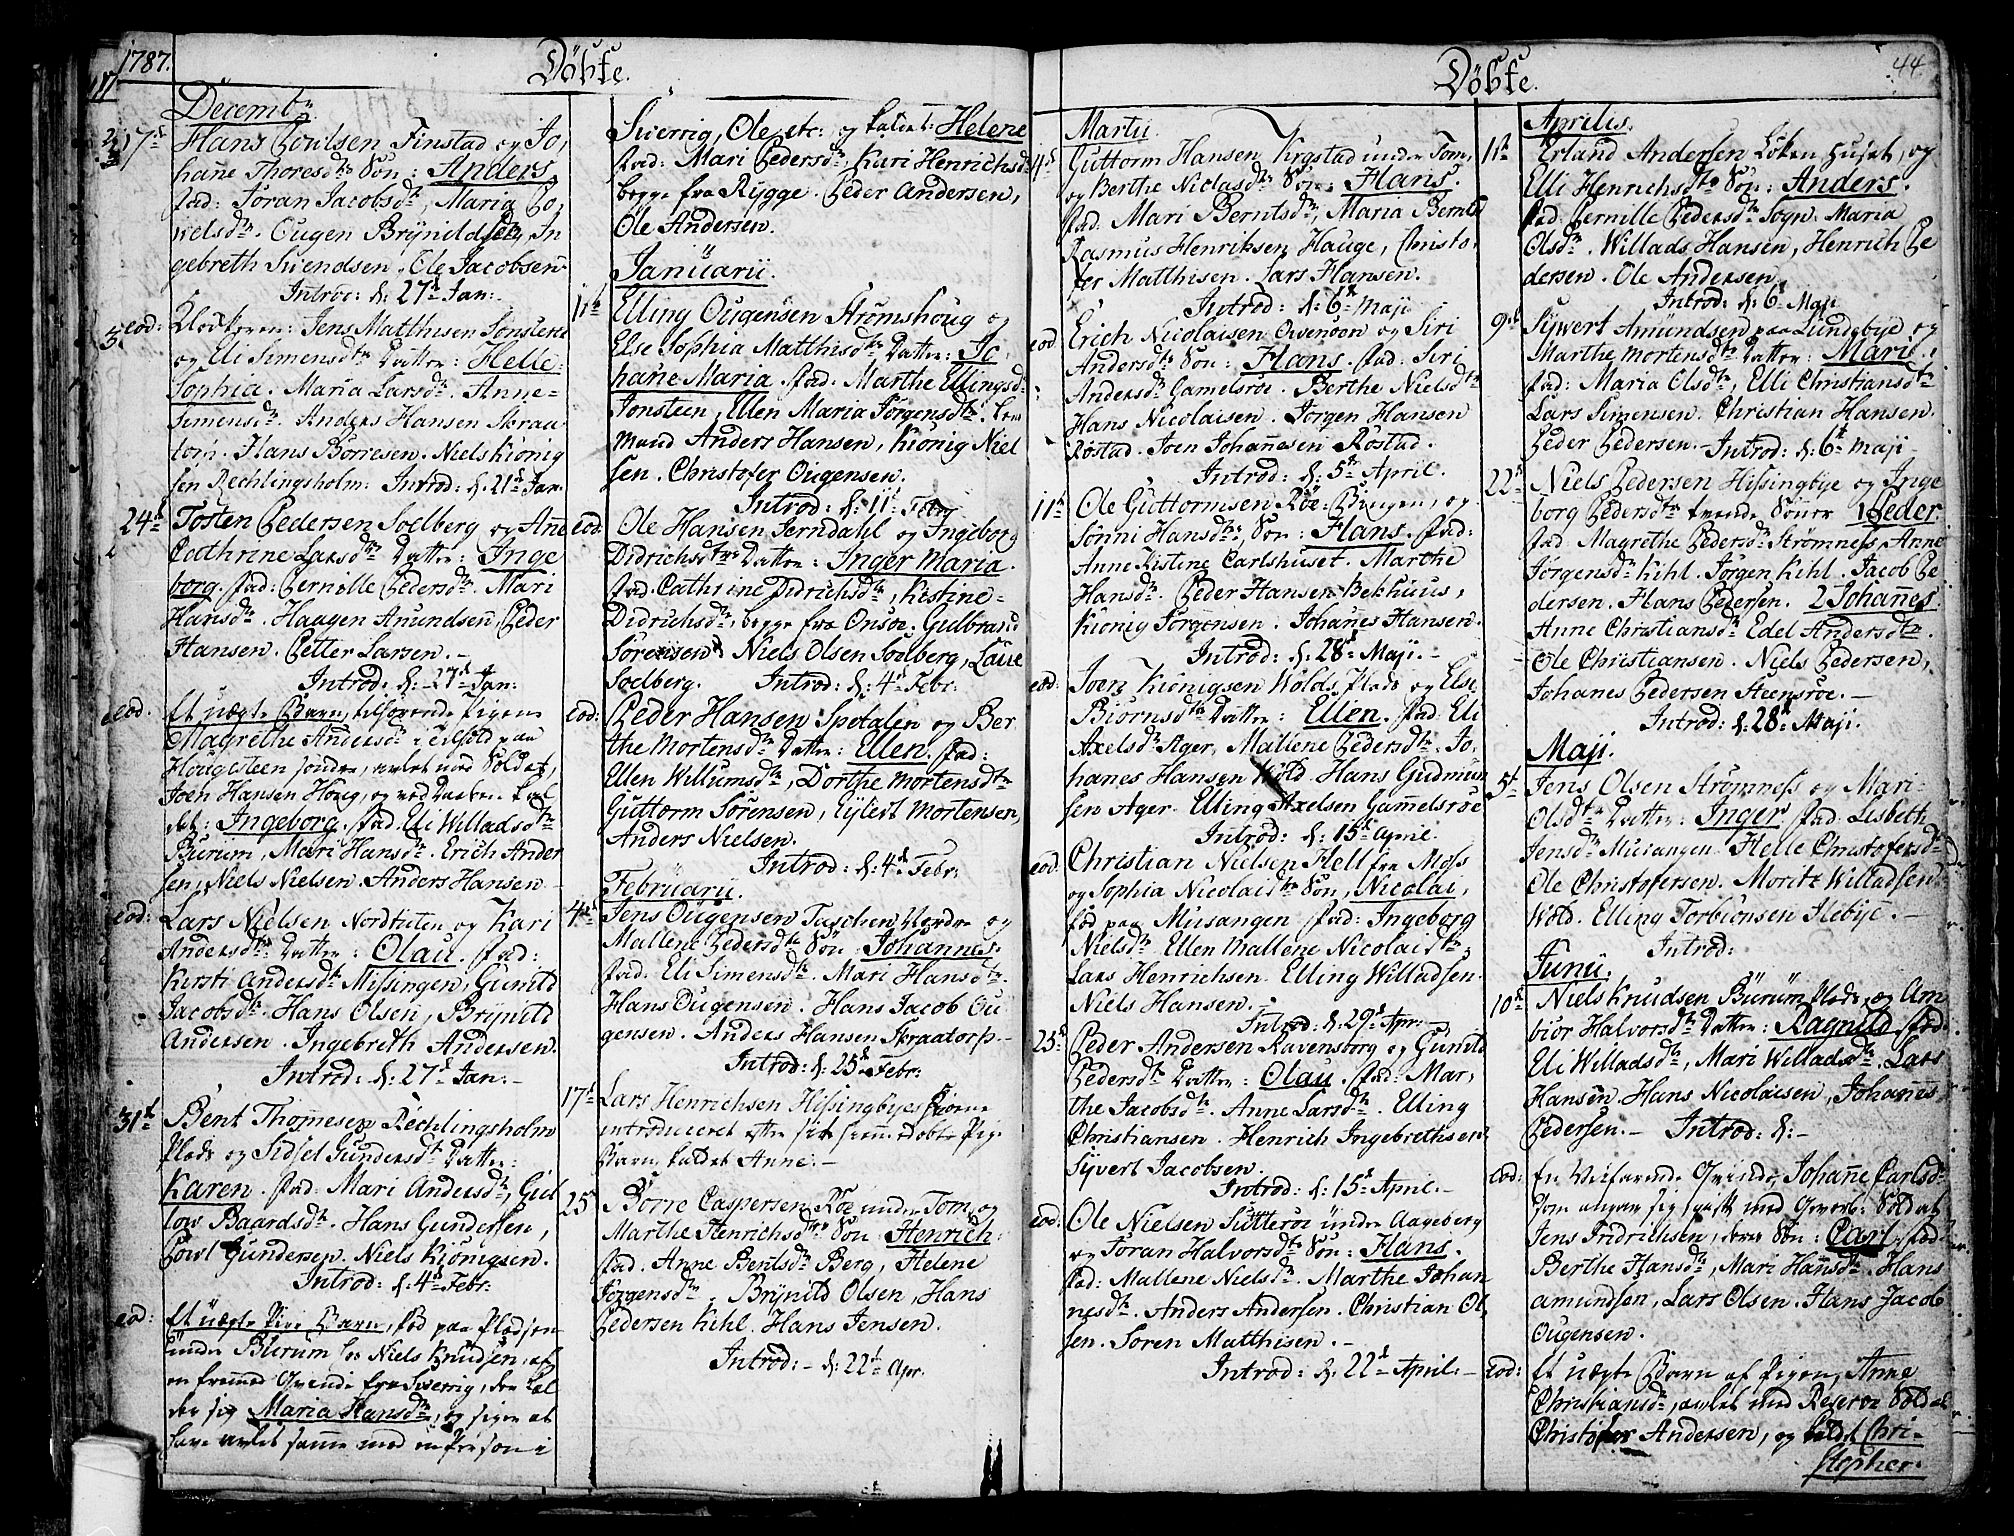 1787.
Döbte.
Decembr
17de Hans Povlsen Finstad og Jo,
hane Thoresdtr Søn: Anders
fad: Joran Jacobsdtr, Maria Po,
velsdtr. Ougen Brÿnildsen, In
gebreth Svendsen, Ole Jacobsen
Introd: d: 27de Jan:
eod: Klokkeren: Jens Matthisen
og Eli Simensdtr Datter: Helle
Sophia. Maria Larsdtr. Anne
Simensdtr. Anders Hansen Skraa
torp. Hans Börresen. Niels Kiönig
sen Rechlingsholm. Introd: d. 21de Jan.
24de Tosten Pedersen Soelberg og Ane
Cathrine Larsdtr Datter: Inge
borg. fad: Pernille Pedersdtr. Mari
Hansdtr. Haagen Anundsen, Peder
Hansen. Petter Larsen.
Introd: d: 27de Jan:
eod. Et uægte Barn, tilhörende Pigen
Magrethe Andersdtr i
Hougesteen søndre, avlet med Soldat,
Joen Hansen Houg, og ved Daaben kal
det: Ingeborg. fad. Eli Willadsdtr
Burum, Mari Hansdtr. Erich Ander
sen, Niels Nielsen. Anders Hansen
eod: Lars Nielsen Nordtvten og Kari
Andersdtr Datter: Olau. fad:
Kirsti Andersdtr Missingen, Gunild
Jacobsdtr. Hans Olsen, Brÿnild
Andersen. Ingebreth Andersen.
Introd: d: 27de Jan:
31de Bent Thomesen Rechlingsholm
Plads og Sidsel Gundersdtr Datter:
Karen. fad: Mari Andersdtr, Gul
low Baardsdtr. Hans Gundersen,
Povl Gundersen. Niels Kiönigsen.
Introd: d: 4de Febr:
eod: Et uægte Pige Barn, fød paa Pladsen
under Burum hos Niels Knudsen, af
en fremmed Qvinde fra Sverrig, som kal
der sig Maria Hansdtr, og siger at
have avlet samme med en Person i
Sverrig, Ole etc: og kaldet: Helene
fad: Mari Pedersdtr Kari Henrichsd
begge fra Rygge. Peder Andersen,
Ole Andersen.
Januarii.
11te Elling Ougensen Strømshoug og
Else Sophia Matthisdtr Datter: Jo
hane Maria. fad: Marthe Ellingsd
Jonsteen, Ellen Maria Jörgensdtr. Lens
mand Anders Hansen, Kiönig Niel
sen. Christofer Ougensen.
Introd: d: 11te Febr
eod: Ole Hansen Jerndahl og Ingeborg
Didrichsdtr Datter: Inger Maria.
fad. Cathrine Didrichsdtr, Kistine
Didrichsdtr, begge fra Onsøe. Gulbrand
Sörensen Niels Olsen Soelberg, Laue
Soelberg. Introd: d: 4de Febr:
eod: Peder Hansen Spetalen og Ber
the Mortensdtr Datter: Ellen. fad:
Ellen Willumsdtr, Dorthe Mortensdtr
Guttorm Sörensen, Eÿlert Mortensen,
Anders Nielsen.
Introd: d: 4de Febr:
Februarii.
4de Jens Ougensen Taschen Nordre og
Mallene Pedersdtr Søn: Johannes.
fad. Eli Simensdtr. Mari Hansdtr.
Hans Ougensen. Hans Jacob Ou
gensen. Anders Hansen Skraatorp.
Introd: d: 25de Febr:
17de Lars Henrichsen Hissingbyes Kone
introduceret efter sit hjemmedøbte Pige
Barn, kaldet Anne.
25 Börre Caspersen Röe under Tom og
Marthe Henrichsdtr Søn: Henrich
fad. Anne Bentsdtr Berg, Helene
Jörgensdtr. Brÿnild Olsen, Hans
Pedersen Kihl. Hans Jensen.
Introd: d: 22de Apr.
44
Döbte.
Martii.
4de Guttorm Hansen Krogstad under Tom,
og Berthe Niclasdtr Søn: Hans.
fad. Mari Berntsdtr, Maria Berntsd
Rasmus Henriksen Hauge, Christo
fer Matthisen. Lars Hansen.
Introd: d: 6te Maji
eod Erich Nicolaisen Ovenöen og Siri
Andersdtr Søn: Hans. fad: Siri
Andersdtr Gamelsröe. Berthe Nielsdtr
Hans Nicolaisen. Jörgen Hansen
Röstad. Joen Johanesen Röstad.
Introd: d: 5te April.
11te Ole Guttormsen Röe Böugen, og
Sönni Hansdtr, Søn: Hans. fad:
Anne Kistine Carlshuset. Marthe
Hansdtr. Peder Hansen Bekhuus,
Kiönig Jörgensen. Johanes Hansen.
Introd: d: 28de Maji.
eod: Joen Kiönigsen Wolds Plads og Else
Biörnsdtr Datter: Ellen. fad: Eli
Axelsdtr Ager, Mallene Pedersdtr. Jo,
hanes Hansen Wold. Hans Gudmun
sen Ager. Elling Axelsen Gammelsröe
Introd: d: 15de April.
eod. Christian Nielsen Hell fra Moss
og Sophia Nicolaidtr Søn, Nicolai,
fød paa Musangen fad: Ingeborg
Nielsdtr. Ellen Mallene Nicolaidtr.
Lars Henrichsen. Elling Willadsen.
Niels Hansen.
Introd: d: 29de Apr:
25de Peder Andersen Ravensborg og Gunild
Pedersdtr Datter: Olau. fad: Mar,
the Jacobsdtr. Anne Larsdtr. Elling
Christiansen. Henrich Ingebrethsen
Syvert Jacobsen.
Introd: d: 15de April.
eod: Ole Nielsen Sutteröe under Aageberg
og Joran Halvorsdtr Søn: Hans.
fad: Mallene Nielsdtr. Marthe Johan
nesdtr. Anders Andersen. Christian Ol,
sen. Soren Matthisen.
Introd: d. 22de April.
Aprilis.
11te Erland Andersen Löken huset, og
Elli Henrichsdtr Søn: Anders.
fad: Pernille Pedersdtr Sogn. Maria
Olsdtr. Willads Hansen, Henrich Pe
dersen. Ole Andersen
Introd: d: 6te Maji
9de Sÿwert Amundsen paa Lundebÿe og
Marthe Mortensdtr Datter: Mari.
fad: Maria Olsdtr, Elli Christiansdtr
Lars Simensen. Christian Hansen.
Peder Pedersen. Introd: d: 6te Maji
22de Niels Pedersen Hissingbÿe og Inge
borg Pedersdtr tvende Sönner 1 Peder.
fad. Magrethe Pedersdtr Strömness, Anne
Jörgensdtr Kihl. Jörgen Kihl. Jacob Pe
dersen. Hans Pedersen. 2 Johanes
Anne Christiansdtr Edel Andersdtr.
Ole Christiansen. Niels Pedersen,
Johanes Pedersen Steensröe.
Introd: d: 28de Maji.
Maji.
5te Jens Olsen Strömness og Mari
Olsdtr Datter: Inger fad: Lisbeth
Jensdtr Musangen. Helle Christofersdtr
Ole Christofersen. Moritz Willadsen
Wold. Elling Torbiönsen Ilebÿe.
Introd:
Junii.
10de Niels Knudsen Burum Plads, og Am
biör Halvorsdtr Datter: Ragnild fad.
Eli Willadsdtr, Mari Willadsdtr. Lars
Hansen. Hans Nicolaisen, Johanes
Pedersen. Introd: d:
eod: En Veifarende Qvinde, Johane Carlsdtr
som angav sig gift med Soldat
Jens Fridrichsen, deres Søn: Carl. fad:
Berthe Hansdtr, Mari Hansdtr. Hans
Amundsen, Lars Olsen. Hans Jacob
Ougensen.
eod: Et uægte Barn af Pigen, Anne
Christiansdtr, avlet med Reserve Soldat
Christofer Andersen, og kaldet Chri
stopher.